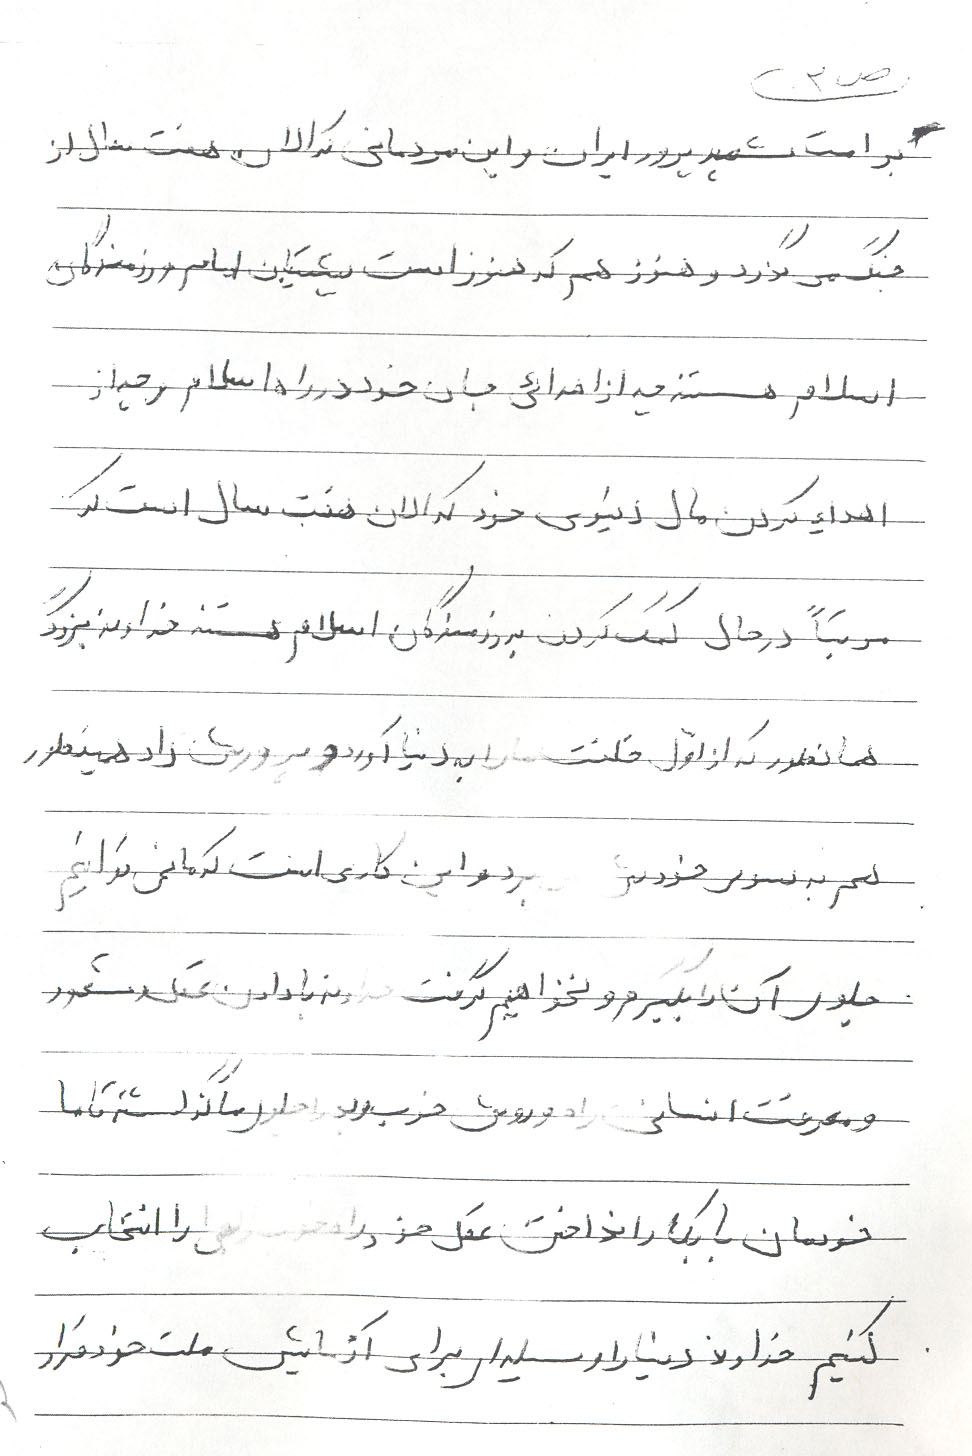 ص ۳
بر امت شهید پرور ایران و این مردمانی که الان هفت سال از
جنگ می گذرد و هنوز هم که هنوز است پشتیبان امام و رزمندگان
اسلام هستند چه از اهدائی جان خود در راه اسلام و چه از
اهداء کردن مال دنیوی خود که الان هفت سال است که
مرتباً در حال کمک کردن به رزمندگان اسلام هستند خداوند بزرگ
همانطور که از اول خلقت ما را به دنیا آورد و پرورش داد همینطور
هم به سوی خودش می برد و این کاری است که ما نمی توانیم
جلوی آن را بگیریم و نخواهیم گرفت خداوند با دادن عقل و شعور
و معرفت انسانی راه و روش خوب و بد را جلوی ما گذاشته تا ما
خودمان با بکار انداختن عقل خود راه خوب الهی را انتخاب
کنیم خداوند دنیا را وسیله ای برای آزمایش ملت خود قرار